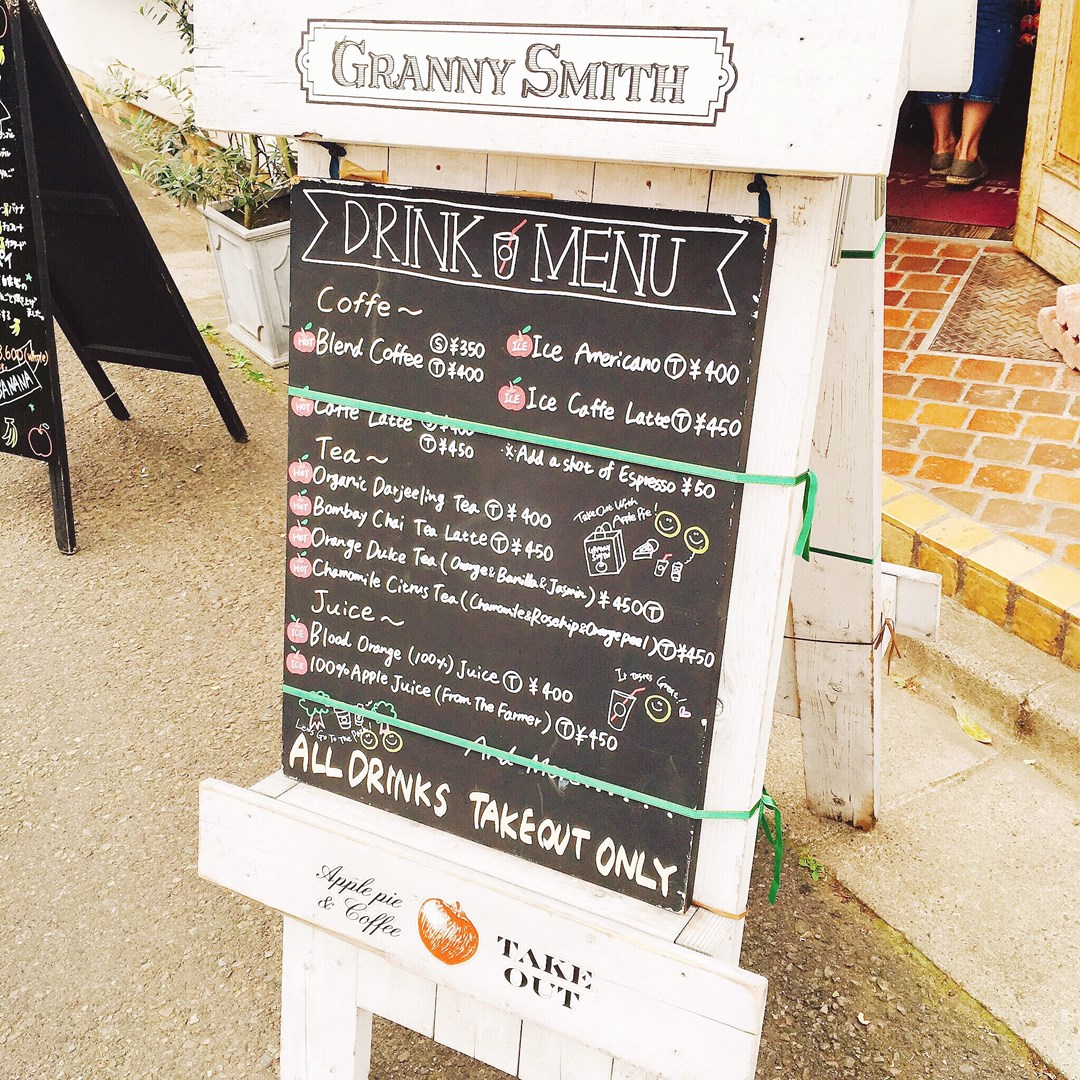 GRANNY SMITH
DRINK MENU
Coffe~
HOT Blend Coffee Ⓢ ¥350
Ⓣ ¥400
ICE Ice Americano Ⓣ ¥400
ICE Ice Caffe Latte Ⓣ ¥450
HOT Caffe Latte Ⓢ ¥400
Ⓣ ¥450
※Add a shot of Espresso ¥50
Tea~
HOT Organic Darjeeling Tea Ⓣ ¥400
HOT Bombay Chai Tea Latte Ⓣ ¥450
HOT Orange Dulce Tea (Orange&Banilla&Jasmin) ¥450Ⓣ
HOT Chamomile Citrus Tea (Chamomile&Rosehip&Orangepeel) Ⓣ¥450
Take Out With
Apple Pie!
GRANNY
SMITH
Juice~
ICE Blood Orange (100%) Juice Ⓣ ¥400
ICE 100% Apple Juice (From The Farmer) Ⓣ ¥450
It tastes Great!!
Let's Go To The Park!
And More......
ALL DRINKS TAKEOUT ONLY
Apple pie
& Coffee
TAKE
OUT
BANANA